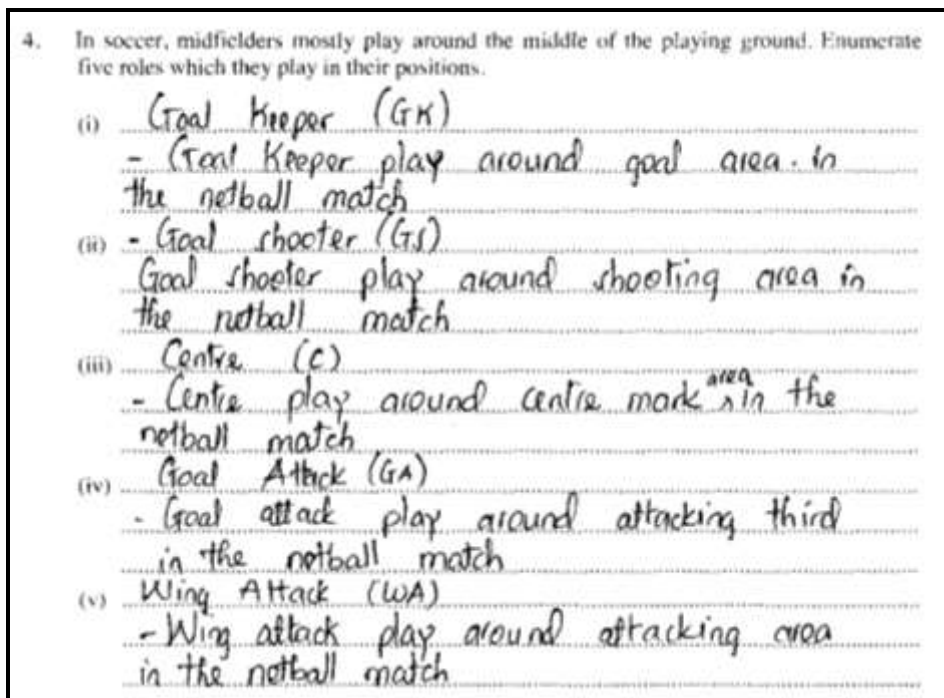 4. In soccer, midfielders mostly play around the middle of the playing ground. Enumerate
five roles which they play in their positions.
(i) Goal Keeper (GK)
- Goal Keeper play around goal area. in
the netball match
(ii) - Goal shooter (GS)
Goal shooter play around shooting area in
the netball match
(iii) Centre (C)
- Centre play around centre mark area in the
netball match
(iv) Goal Attack (GA)
- Goal attack play around attacking third
in the netball match
(v) Wing Attack (WA)
- Wing attack play around attacking area
in the netball match